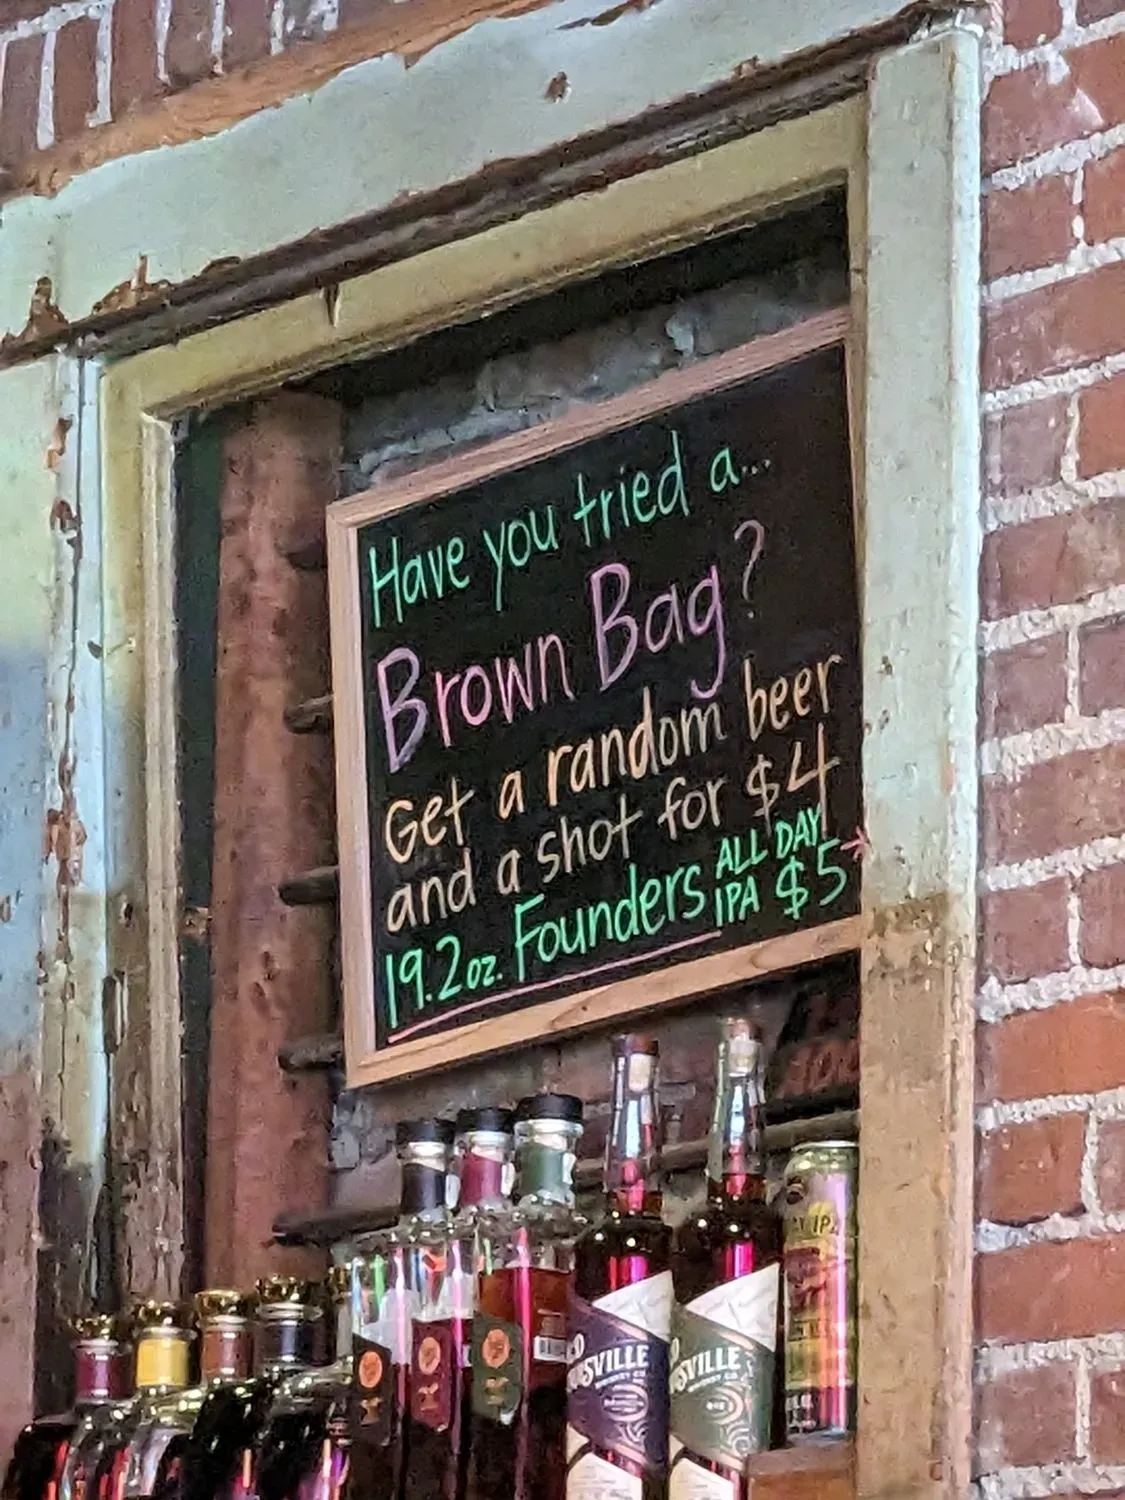 Have you tried a...
Brown Bag?
Get a random beer
and a shot for $4
19.2oz. Founders ALL DAY IPA $5
SVILLE
SVILLE